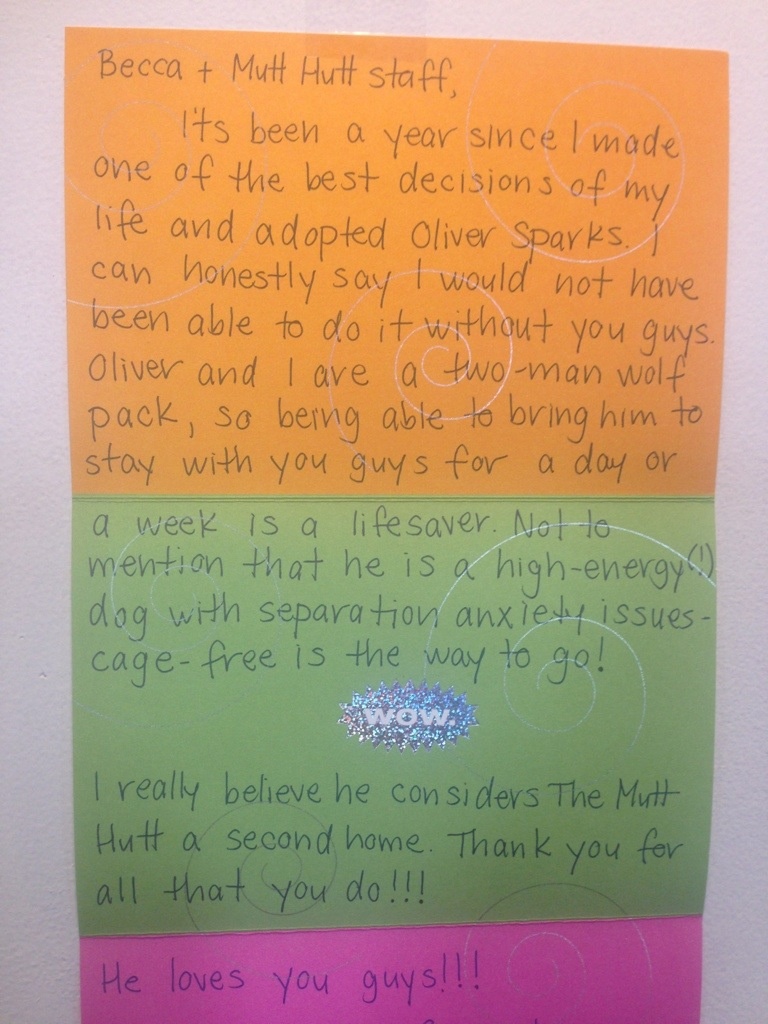 Becca + Mutt Hutt staff,
It's been a year since I made
one of the best decisions of my
life and adopted Oliver Sparks. I
can honestly say I would not have
been able to do it without you guys.
Oliver and I are a two-man wolf
pack, so being able to bring him to
stay with you guys for a day or
a week is a lifesaver. Not to
mention that he is a high-energy(!)
dog with separation anxiety issues-
cage-free is the way to go!
WOW.
I really believe he considers The Mutt
Hutt a second home. Thank you for
all that you do!!!
He loves you guys!!!